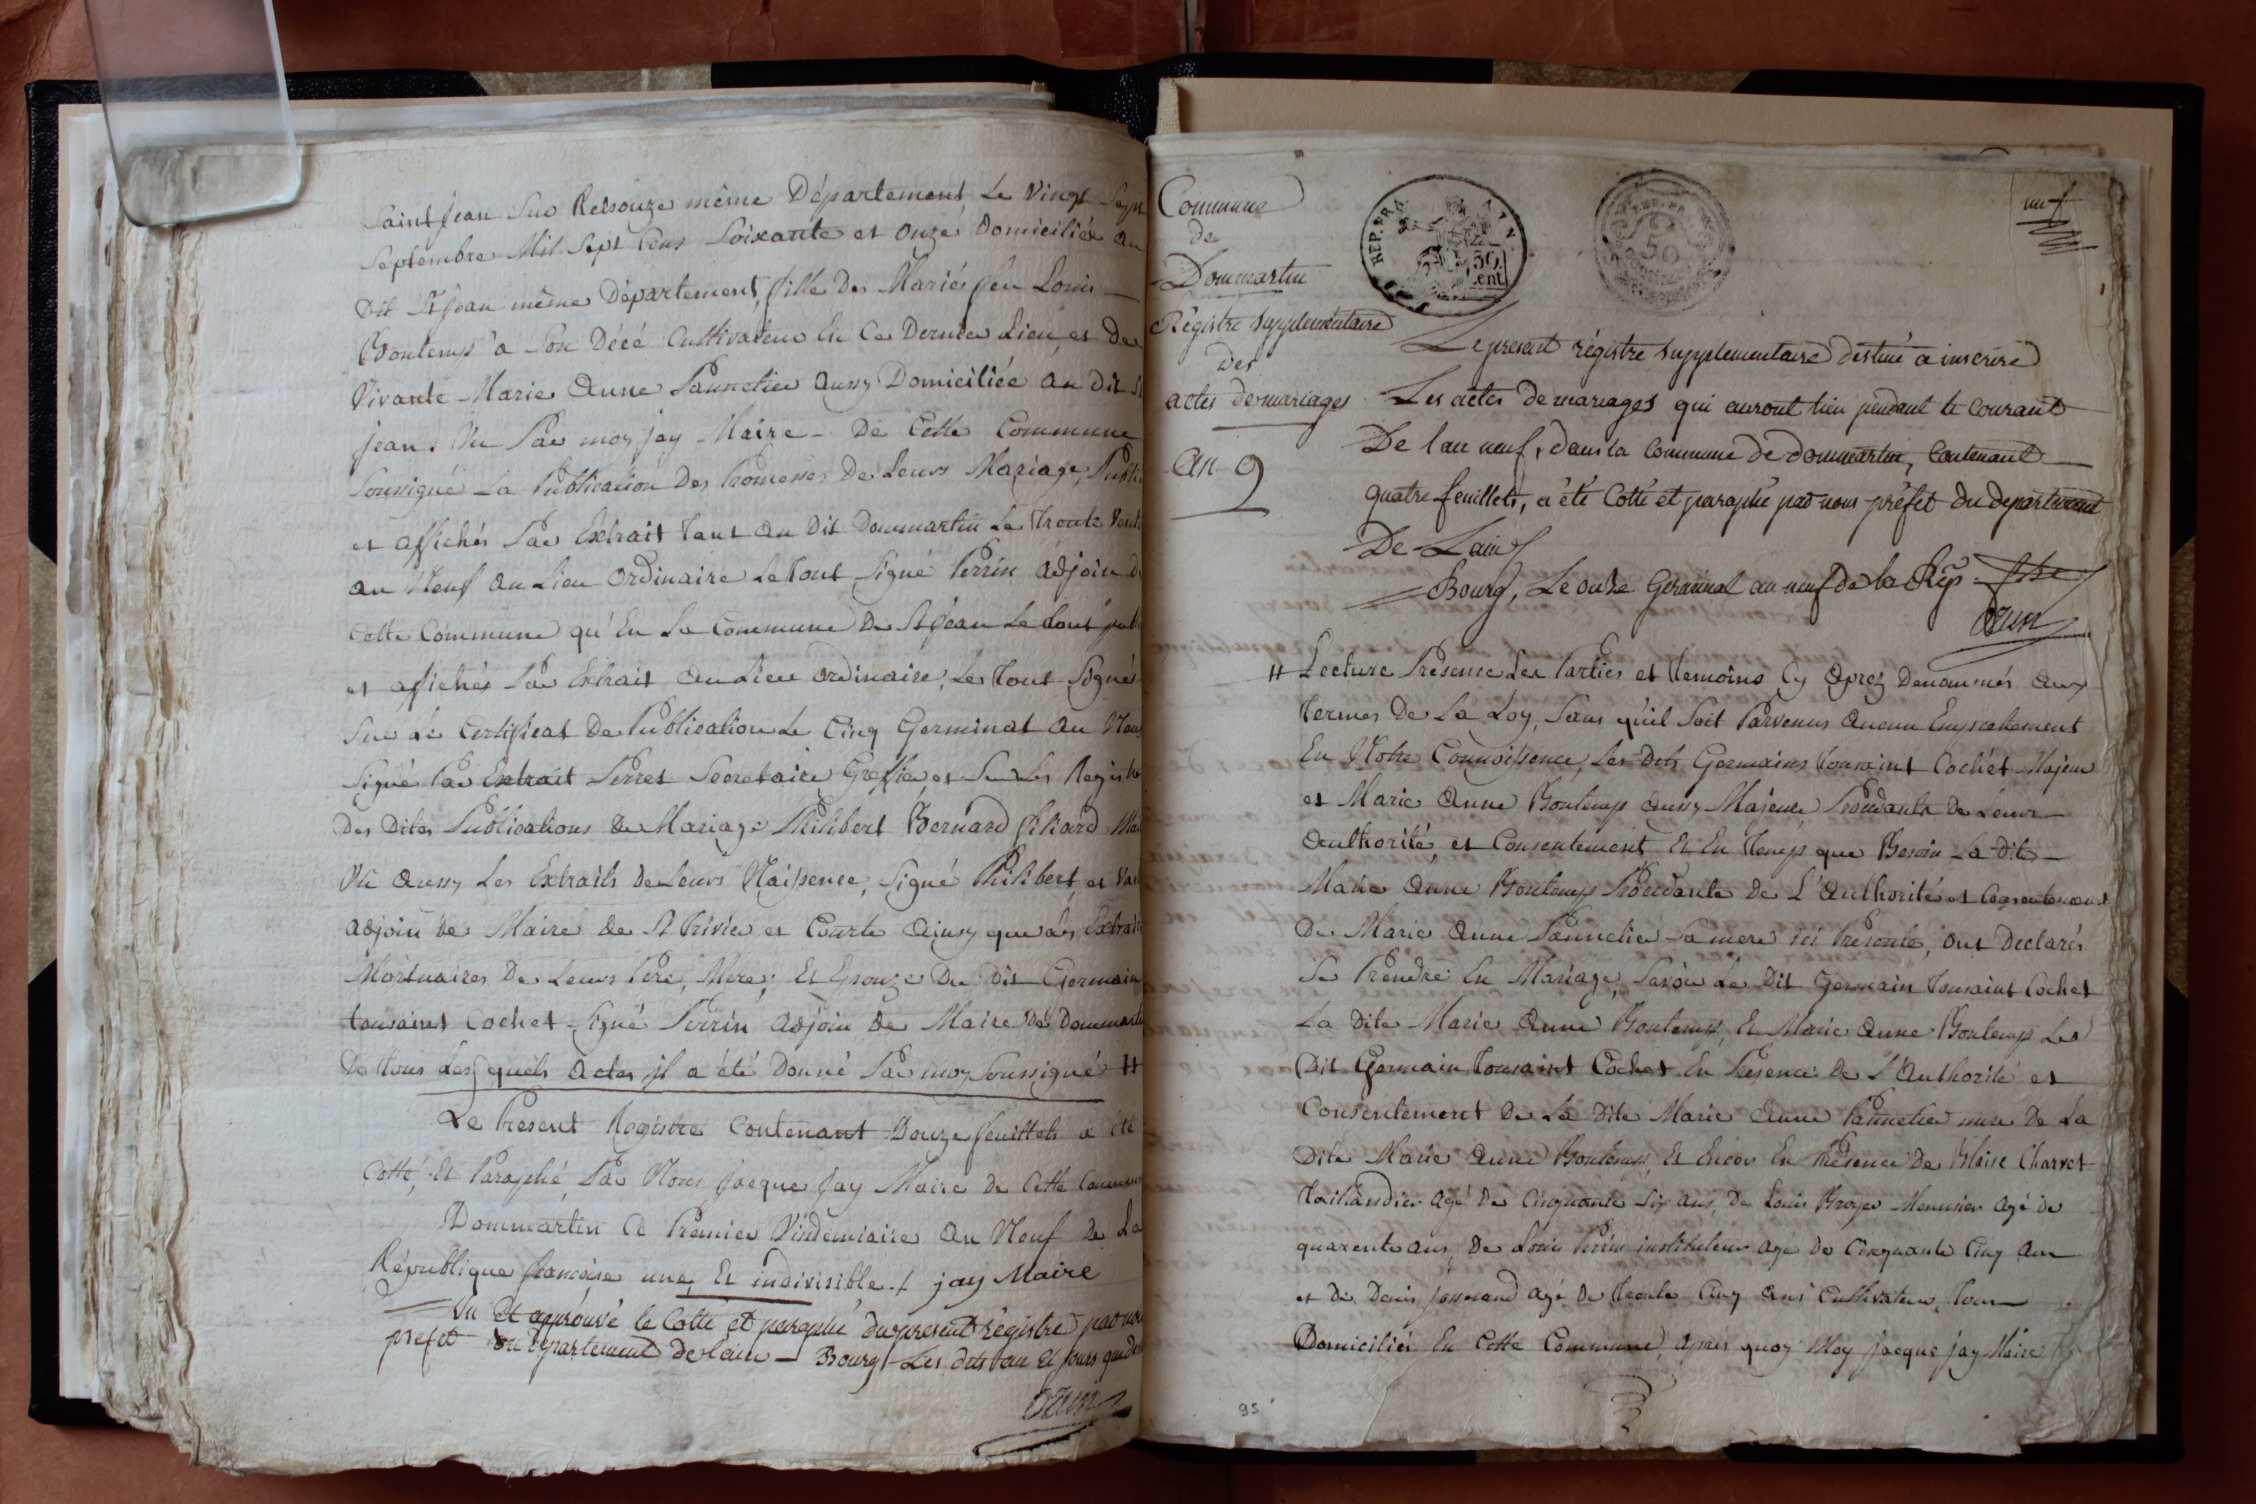 Saint jean Sur Reisouze même Département Le Vingt Sept
Septembre Mil Sept Cens Soixante et Onze Domiciliée au
Dit St jean même Département, fille des Mariés feu Louis
Bontemps a Son Décé Cultivateur En Ce Dernier Lieu, et De
Vivante Marie Anne Pannetier aussy Domiciliée au dit St
jean. Vu Par moy jay Maire De Cette Commune
Soussigné La Publication Des Promesses De Leurs Mariage, Publi
et affichés Par Extrait tant au Dit Dommartin Le Trente Vent
an Neuf au Lieu Ordinaire Le tout Signé Perrin adjoin d
Cette Commune qu'En La Commune De St jean Le tout pub
et affichés Par Extrait au Lieu Ordinaire, Les tout Signé
Sur Le Certificat De Publication Le Cinq Germinal an Neuf
Signé Par Extrait Perret Secretaire Greffier, et Sur Les Regist
Des Dites Publications De Mariage Philibert Bernard Pikard Mai
Vu aussy Les Extraits De Leurs Naissence, Signé Philibert, et
adjoin De Maire De St Trivier et Courte ainsy que des Extrai
Mortuaires De Leurs Pere, Mere, Et Epouze Du Dit Germain
tousaint Cochet Signé Perrin adjoin De Maire De Dommartin
De tous Les quels actes il a été Donné Par moy Soussigné #
Le Present Registre Contenant Douze feuillets a été
Cotté, Et Paraphé, Par Nous Jacque Jay Maire de Cette Commun
Dommartin Ce Premier Vindemiaire an Neuf De La
République francoise une, Et indivisible ./. jay Maire
Vu Et approuvé le Cotté et paraphé du present régistre par nou
prefet du département de l'ain — Bourg Les dits an Et jours que d
ozun
Commune
de
Dommartin
Régistre supplementaire
des
actes de mariages
An 9
REP. FRA.
50
cent
50
neuf
Le present régistre supplementaire destiné a inscrire
Les actes de mariages qui auront lieu pendant le courant
De l'an neuf, dans la Commune de dommartin, Contenant
quatre feuillets, a été Cotté et paraphé par nous préfet du departement
De Lain
Bourg, Le onze Germinal an neuf de la Rép.
ozun
# Lecture Presence Les Parties et temoins Cy après Denommés aux
termes De La Loy, Sans qu'il Soit Parvenus aucun Empechement
En Notre Connoissence, Les Dits Germains tousaint Cochet Majeur
et Marie Anne Bontemps aussy Majeure, Procédants De Leur
authorité, et Consentement Et En temps que Besoin La Dite
Marie Anne Bontemps Procédante De L'authorité et Consentement
De Marie Anne Pannetier Sa mere ici Presente, ont Declarés
Se Prendre En Mariage, Savoir Le Dit Germain tousaint Cochet
La Dite Marie Anne Bontemps, Et Marie Anne Bontemps Le
Dit Germain tousaint Cochet En Presence De L'Authorité et
Consentement De La Dite Marie Anne Pannetier mere De La
Dite Marie Anne Bontemps, Et Encor En Présence De Blaise Charvet
taillandier agé De Cinquante Six ans, De Louis Broyer Menusier agé de
quarente ans, De Louis Perrin instituteur agé De Cinquante Cinq ans
et De Denis josserand agé De trente Cinq ans Cultivateur, tous
Domiciliés En Cette Commune, apres quoy Moy jacque jay Maire
95